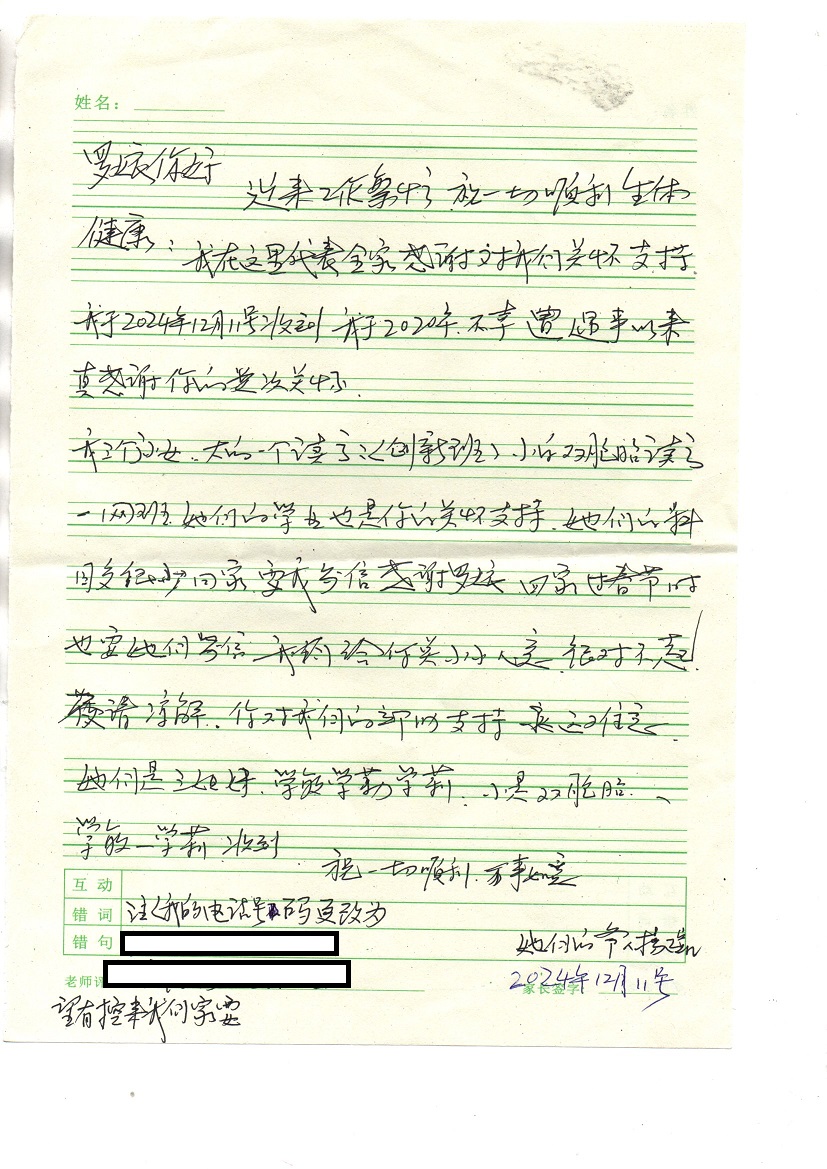 姓名：
罗辰你好
近来工作 祝一切顺利 生体
健康：我在这里代表全家感谢对我们关怀支持.
我于2024年12月11号收到 我于2020年.不幸遭遇事以来
真感谢你的 次关怀.
我三个小女.大的一个读高三（创新班）小的双胞胎读高
一网班 她们的学 也是你的关怀支持.她们的科
目多很少回家 要我写信感谢罗辰 回家过春节时
也要她们写信 我 给你 很对不起
请谅解.你对我们的 支持
她们是三姐妹.学敏学勤学莉.小是双胞胎、
学敏—学莉 收到
祝一切顺利.万事如意
互动
错词 注（我的电话号码更改为
错句
她们的
老师评
家长签字
2024年12月11号
望有控来我们家